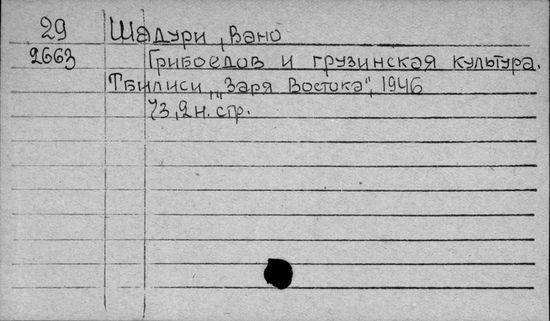 29 Шадури, Вано
2663 Грибоедов и грузинская культура.
Тбилиси, „Заря Востока", 1946
73, 2 н. стр.